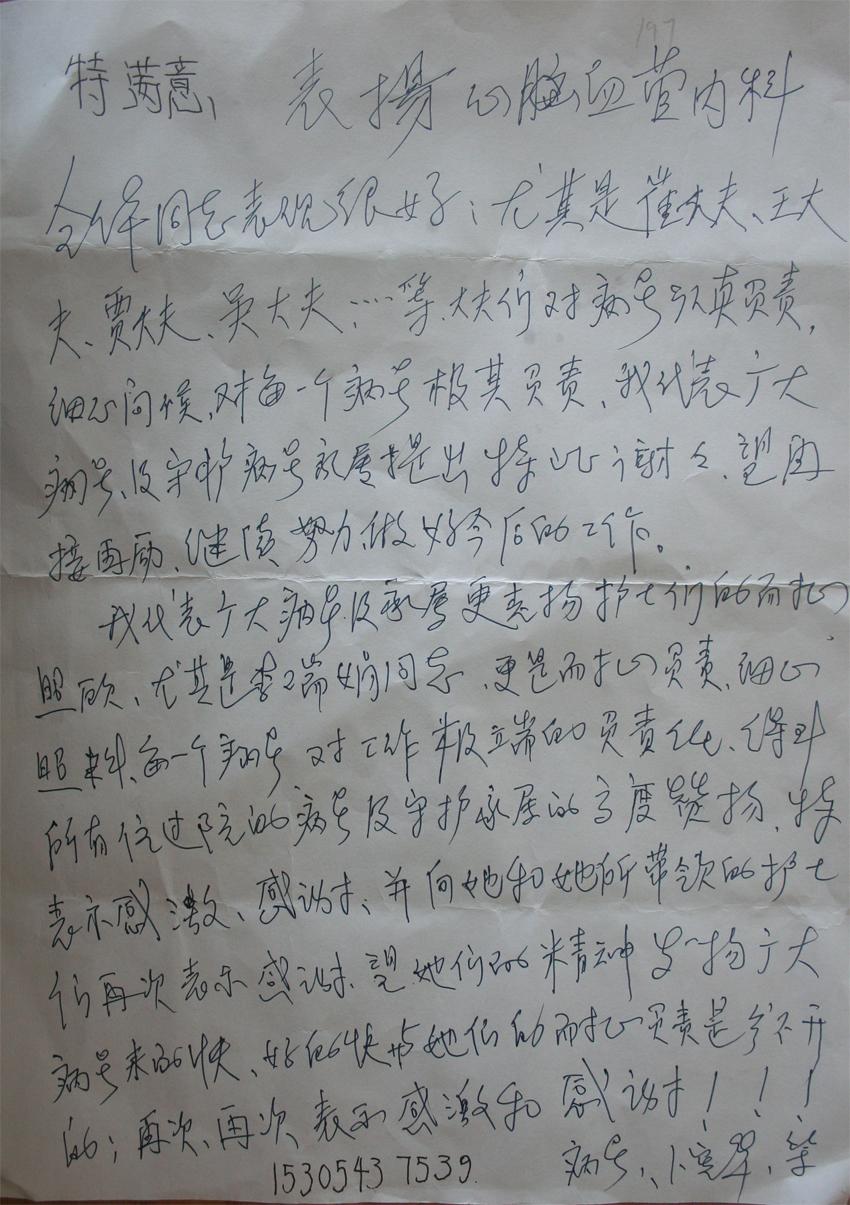 197
特满意、表揚心脑血管内科
全体同志表现很好；尤其是崔大夫、王大
夫、贾大夫、吴大夫……等.大夫们对病号认真负责，
细心问候,对每一个病号极其负责、我代表广大
病号、及守护病号家属提出特此谢々、望再
接再励、继续努力做好今后的工作。
我代表广大病号及家属更表扬护士们的耐心
照顾、尤其是李瑞娟同志、更是耐心负责、细心
照料、每一个病号对工作极端的负责任、得到
所有住过院的病号及守护家属的高度赞扬、特
表示感激、感谢、并向她和她所带领的护士
们再次表示感谢、望她们的精神发扬广大
病号来的快、好的快与她们的耐心负责是分不开
的；再次、再次表示感激和感谢！！！
病号、卜宪翠、等
15305437539